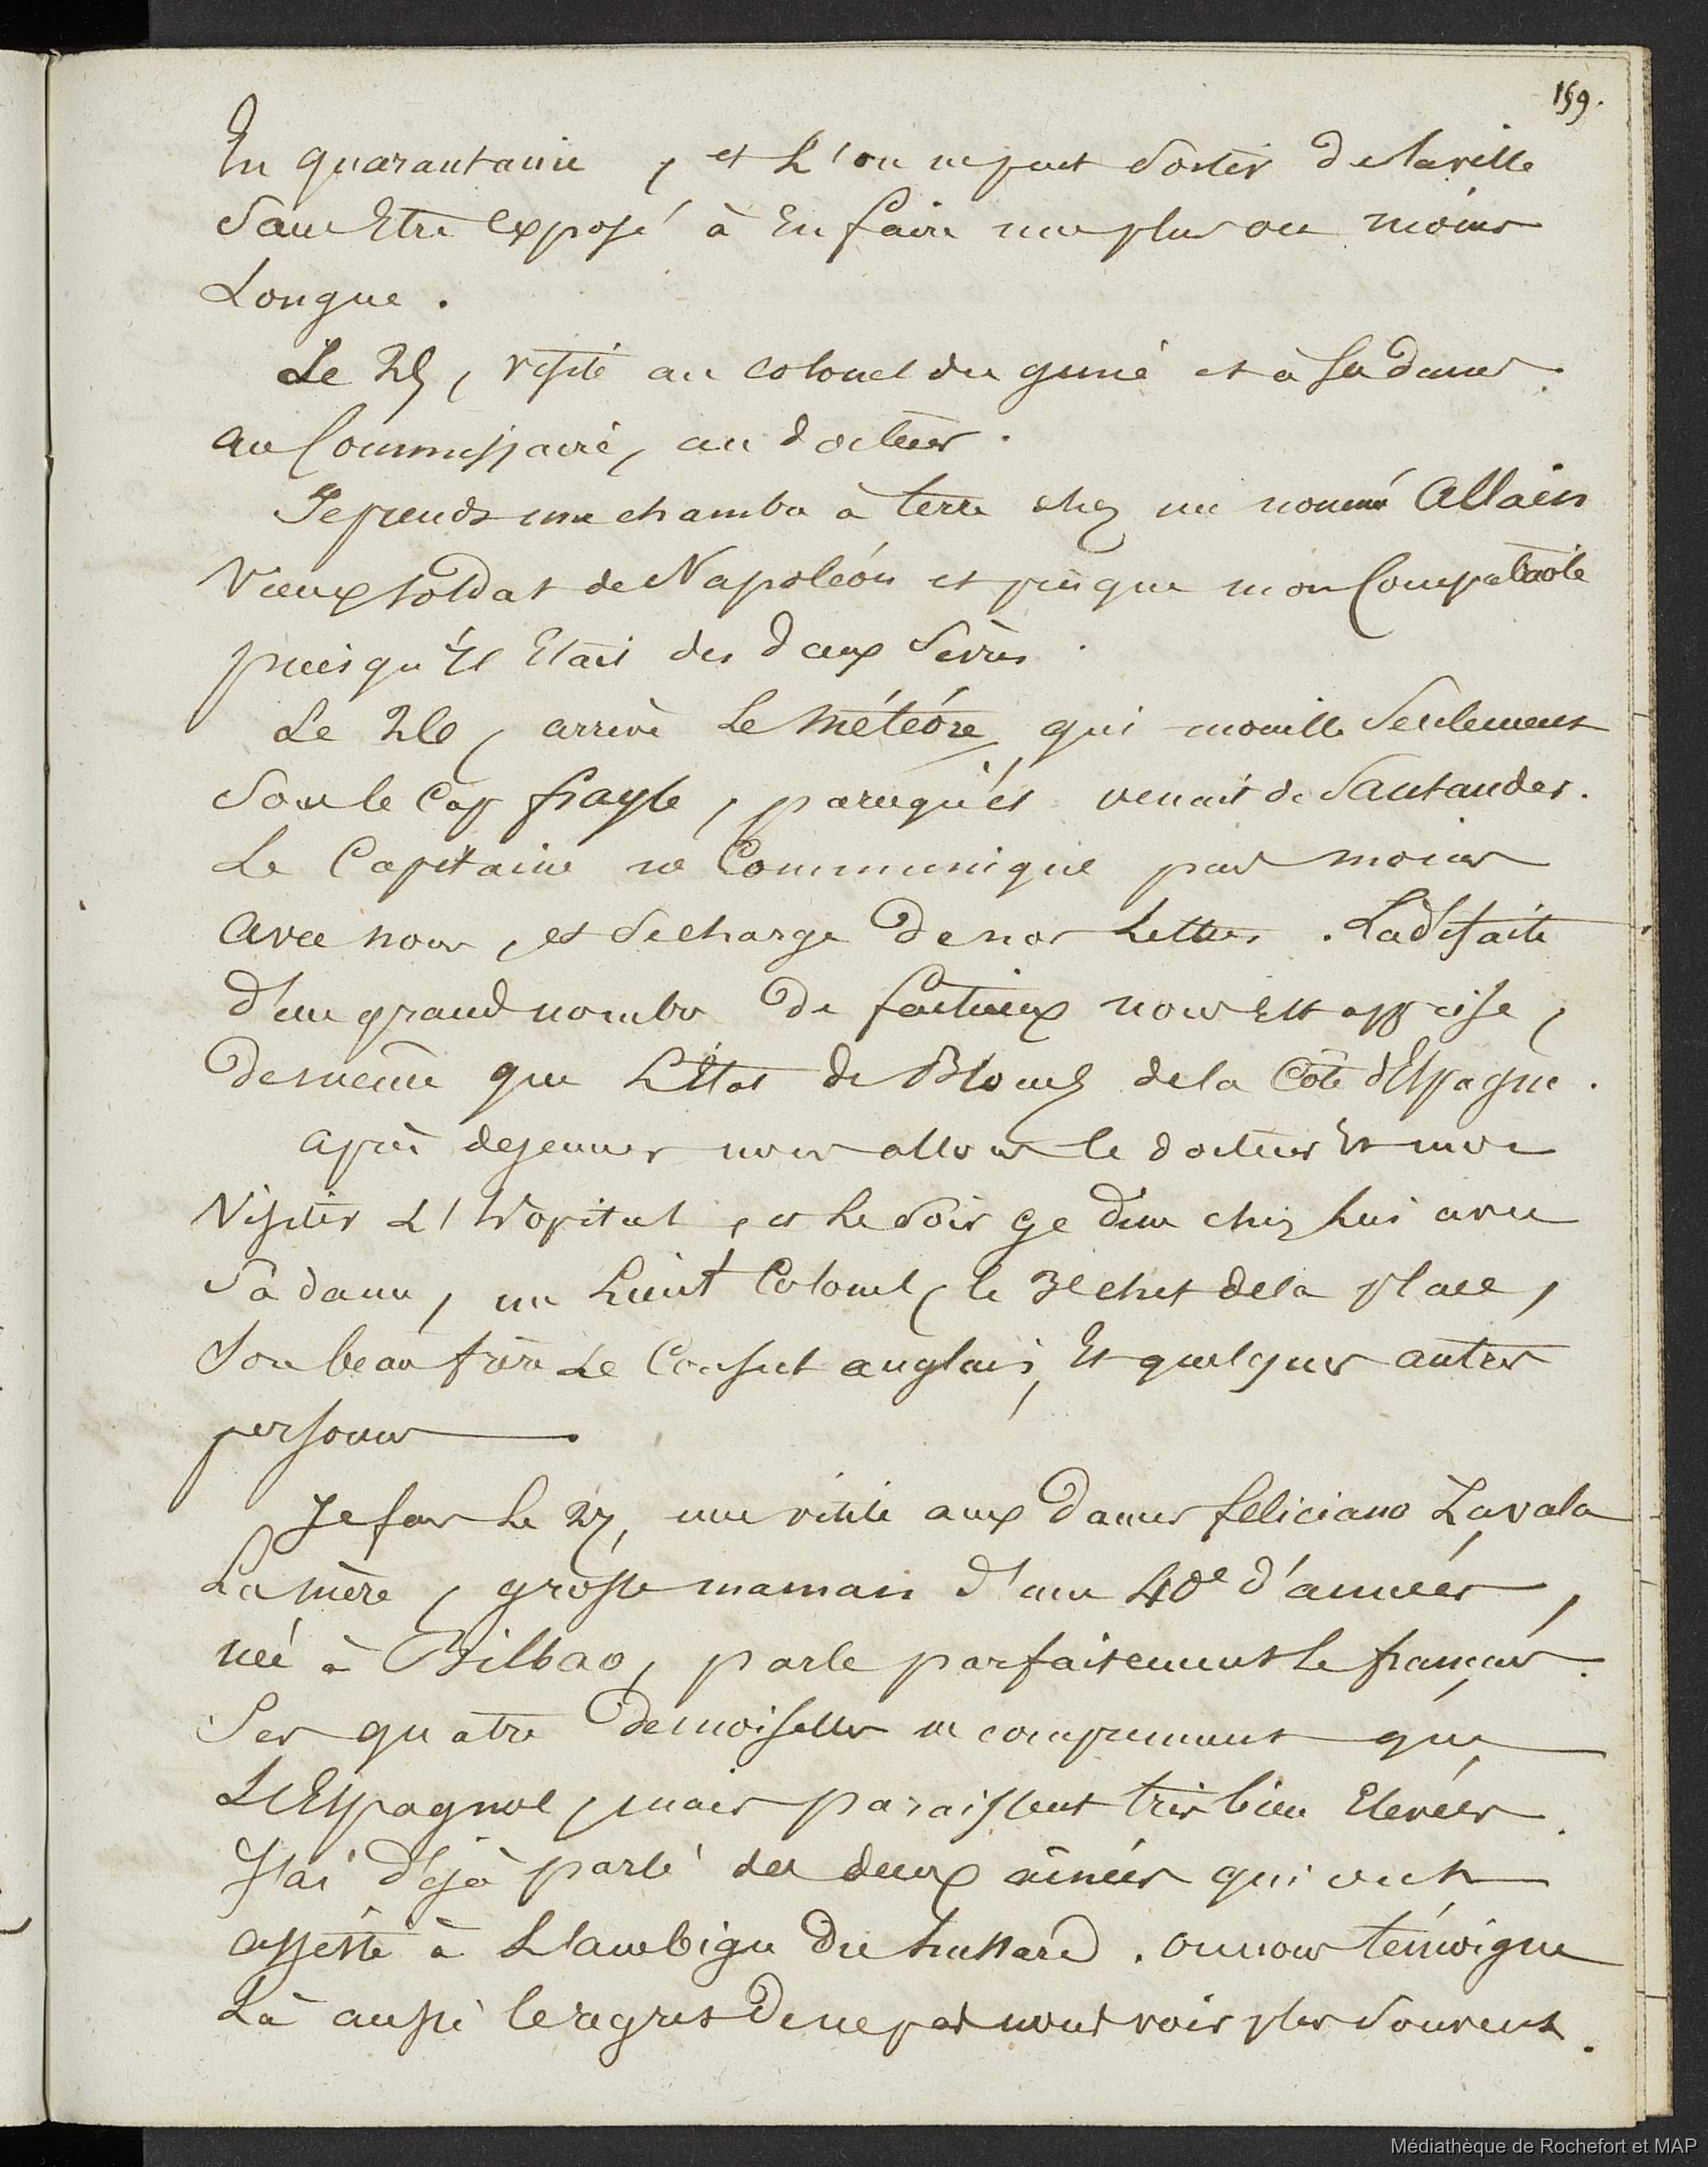 159.
En quarantaine, et L'on ne peut Sortir de la ville
Sans Etre Exposé à En faire une plus ou moins
Longue.
Le 25, visite au colonel du genié et à sa dame
au Commissaire, au docteur.
Je prends une chambre à terre chez un nommé Allain
Vieux soldat de Napoléon et presque mon Compatriote
puisqu'il Etait des Deux Sèvres.
Le 26, arrive Le Météore, qui mouille Seulement
Sous le Cap frayle, parcequ'il venait de Santander.
Le Capitaine ne Communique pas moins
avec nous, et Se charge De nos Lettres. La défaite
d'un grand nombre De factieux nous Est apprise,
De même que L'Etat de Blocus de la Côte d'Espagne.
après dejeuner nous allons le docteur Et moi
Visiter L'Hopital, et Le Soir je dine chez Lui avec
Sa dame, un Lieut Colonel, le 3e chef de la place,
Son beau frère Le Consul anglais, Et quelques autres
personnes.
Je fais Le 27, une visite aux Dames feliciano Zavala
La mère, grosse maman d'une 40e d'années,
née à Bilbao, parle parfaitement Le français.
Ses quatre Demoiselles ne comprennent que
L'Espagnol, mais paraissent très bien Elevées.
J'ai déjà parlé des deux ainées qui ont
assisté à L'ambigu Du hussard. on nous témoigne
Là aussi le regret De ne pas nous voir plus Souvent.
Médiathèque de Rochefort et MAP